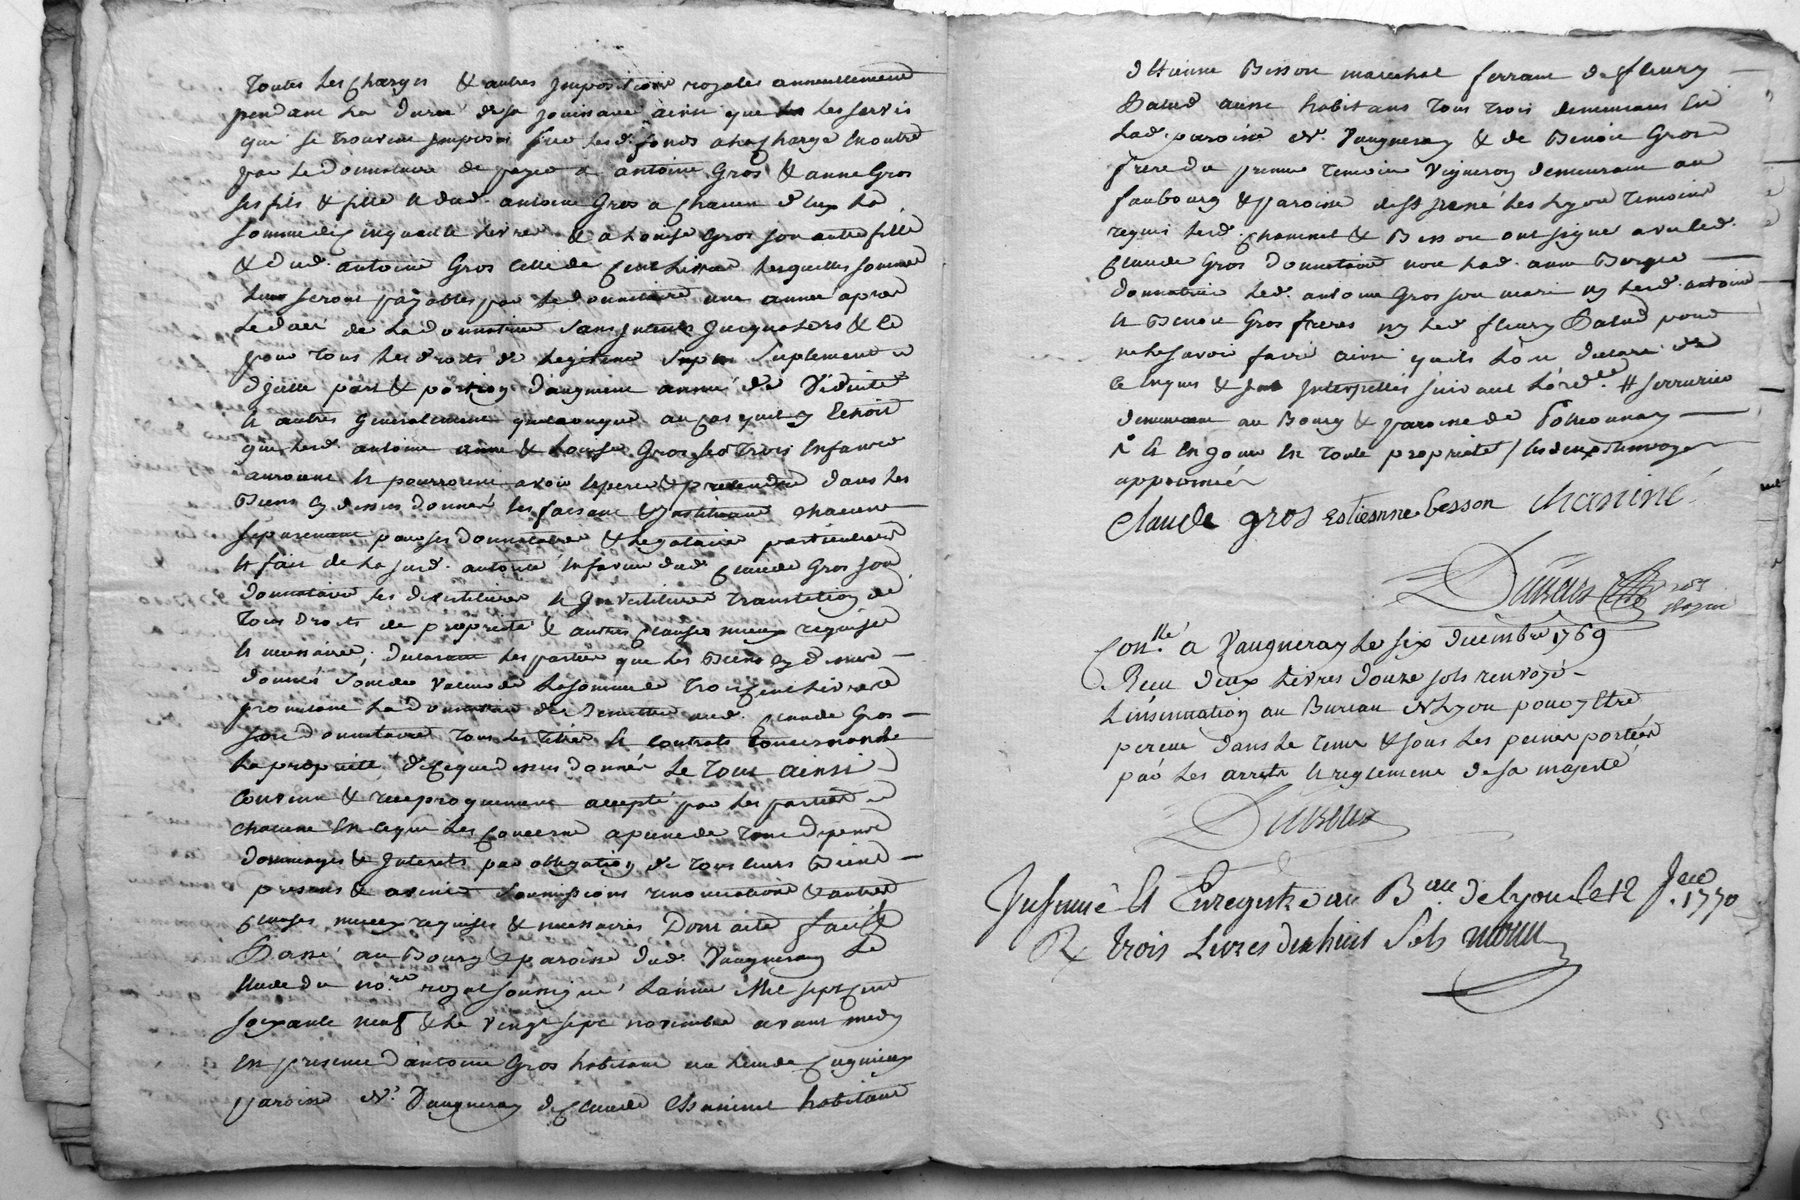 toutes les charges & autres impositions royales annuellement
pendant la durée de sa jouissance ainsi que les servis
qui se trouveront imposés sur lesd. fonds a la charge en outre
par le donnataire de payer a antoine Gros & anne Gros
ses fils & fille & dud. antoine Gros a chacun d'eux la
somme de cinquante livres & a Louise Gros son autre fille
& dud. antoine Gros celle de cent livres lesquelles sommes
leur seront payables par le donnataire une année apres
le deces de la donnatrice sans interets jusqu'alors & ce
pour tous les droits de legitime suplement d'
icelle part & portion d'augment
& autres generalement quelconques au cas qui y echoit
que lesd. antoine anne & Louise Gros ses trois enfants
auroient & pourroient avoir esperer & pretendre dans les
biens cy dessus donnés les faisant & instituant chacun
separement pour ses donnataires & legataires particuliers
& fait de la susd. autorité en faveur dud. Claude Gros son
donnataire les devestitures & investitures translation de
tous droits de propriété & autres clauses mieux requises
& necessaires, declarant les parties que les biens cy dessus
donnés sont de valeur de la somme de trois cent livres
promettant la donnatrice de remettre aud. Claude Gros
son donnataire tous les titres & contrats concernants
la propriété de ce que dessus donné le tout ainsi
convenu & reciproquement accepté par les parties
chacune en ce qui les concerne a peine de tous depens
dommages & interets par obligation de tous leurs biens
presents & avenir soumissions renonciations & autres
clauses mieux requises & necessaires Dont acte fait &
Passé au Bourg & paroisse dud. Vaugneray
etude du no.re royal soussigné L'année Mil sept cent
soixante neuf & le vingt sept novembre avant midy
en presence d'antoine Gros habitant au lieu de
paroisse d. Vaugneray de Claude Chaniné habitant
d'Etienne Besson marechal ferrant de fleury
Balud aussi habitans tous trois demeurans en
lad. paroisse d. Vaugneray & de Benoit Gros
frere du premier temoin Vigneron demeurant au
faubourg & paroisse de St irené les Lyon temoins
requis lesd. Chaninel & Besson ont signé avec led.
Claude Gros donnataire non lad. anne
donnatrice led. antoine Gros son mary ny lesd. antoine
& Benoit Gros freres ny led fleury Balud pour
ne le savoir faire ainsi qu'ils l'on declaré de
ce enquis & interpellés suivant l'ord.ce # serrurier
demeurant au Bourg & paroisse de Pollionnay
& en jouir en toute proprieté / les deux renvoys
approuvés
Claude gros Estiesnne besson chaniné
Con.lé a Vaugneray le six decembre 1769
Reçu deux livres douze sols renvoyé
L'insinuation au Bureau d Lyon pour y etre
perçue dans le tems & sous les peines portées
par les arrets & reglemens de sa majesté
Insinué & Enregistré au B.au de Lyon le 12 J.er 1770
R trois Livres dix huit Sols